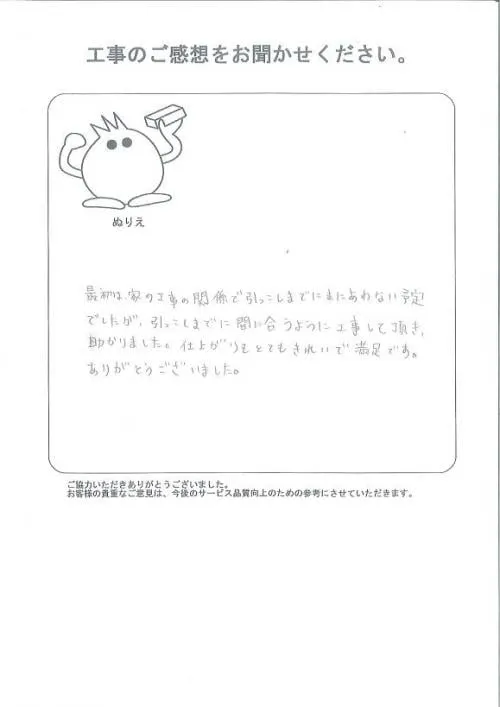 工事のご感想をお聞かせください。
ぬりえ
最初は、家の工事の関係で引っこしまでにまにあわない予定
でしたが、引っこしまでに間に合うように工事して頂き、
助かりました。仕上がりもとてもきれいで満足です。
ありがとうございました。
ご協力いただきありがとうございました。
お客様の貴重なご意見は、今後のサービス品質向上のための参考にさせていただきます。